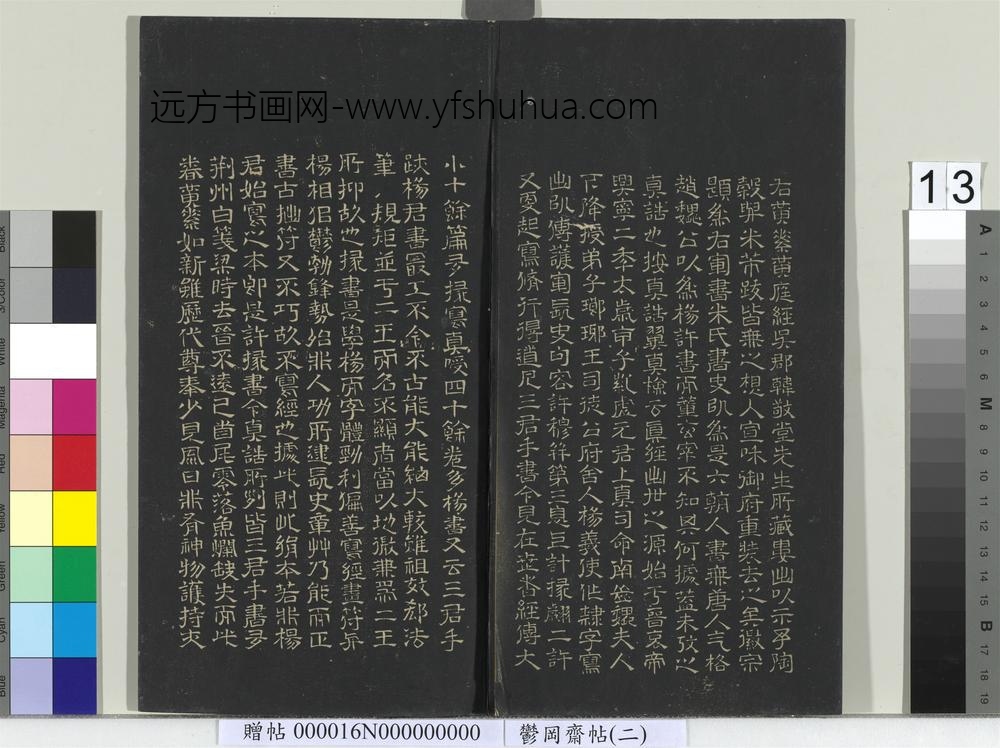 远方书画网-www.yfshuhua.com
右黃素黃庭經吳郡韓敬堂先生所藏婁出以示予陶
穀與米芾跋皆無之想人宣咊御府重裝去之至徽宗
題爲右軍書米氏書史以爲是六朝人書無唐人气格
趙魏公以爲楊許書而董玄宰不知其何據蓋未攷之
真誥也按真誥翼真檢云真經出世之源始于晉哀帝
興寧二年太歲甲子紫虛元君上真司命南嶽魏夫人
下降授弟子瑯琊王司徒公府舍人楊羲使作隸字寫
出以傳護軍長史句容許穆并第三息上計掾翽二許
又更起寫脩行得道凡三君手書今見在世者經傳大
小十餘篇多掾寫真授四十餘卷多楊書又云三君手
跡楊君書最工不今不古能大能細大較雖祖效郗法
筆力規矩並于二王而名不顯者當以地微兼爲二王
所抑故也掾書是學楊而字體勁利偏善寫經畫符與
楊相佀鬱勃鋒勢殆非人功所逮長史章艸乃能而正
書古拙符又不巧故不寫經也據此則此絹本若非楊
君始寫之本卽是許掾書今真誥所列皆三君手書多
荊州白箋梁時去晉不遠已首尾零落魚爛缺失而此
卷黃素如新雖歷代尊奉少見風日非有神物護持
13
贈帖 000016N000000000
鬱岡齋帖(二)
A
1
2
3
4
5
6
M
8
9
10
11
12
13
14
15
B
17
18
19
Black
3/Color
White
Magenta
Red
Yellow
Green
Cyan
Blue